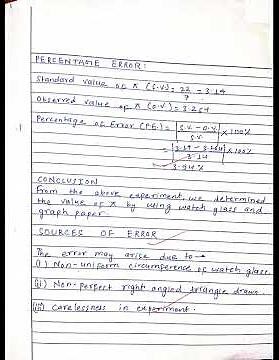 PERCENTAGE ERROR:
Standard value of π (S.V) = 22/7 = 3.14
Observed value of π (O.V) = 3.264
Percentage of Error (P.E.) = |S.V - O.V / S.V| × 100%
= |3.14 - 3.264 / 3.14| × 100%
= 3.94%
CONCLUSION
From the above experiment, we determined
the value of π by using watch glass and
graph paper.
SOURCES OF ERROR
The error may arise due to →
(i) Non-uniform circumference of watch glass.
(ii) Non-perfect right angled triangle drawn.
(iii) Carelessness in experiment.